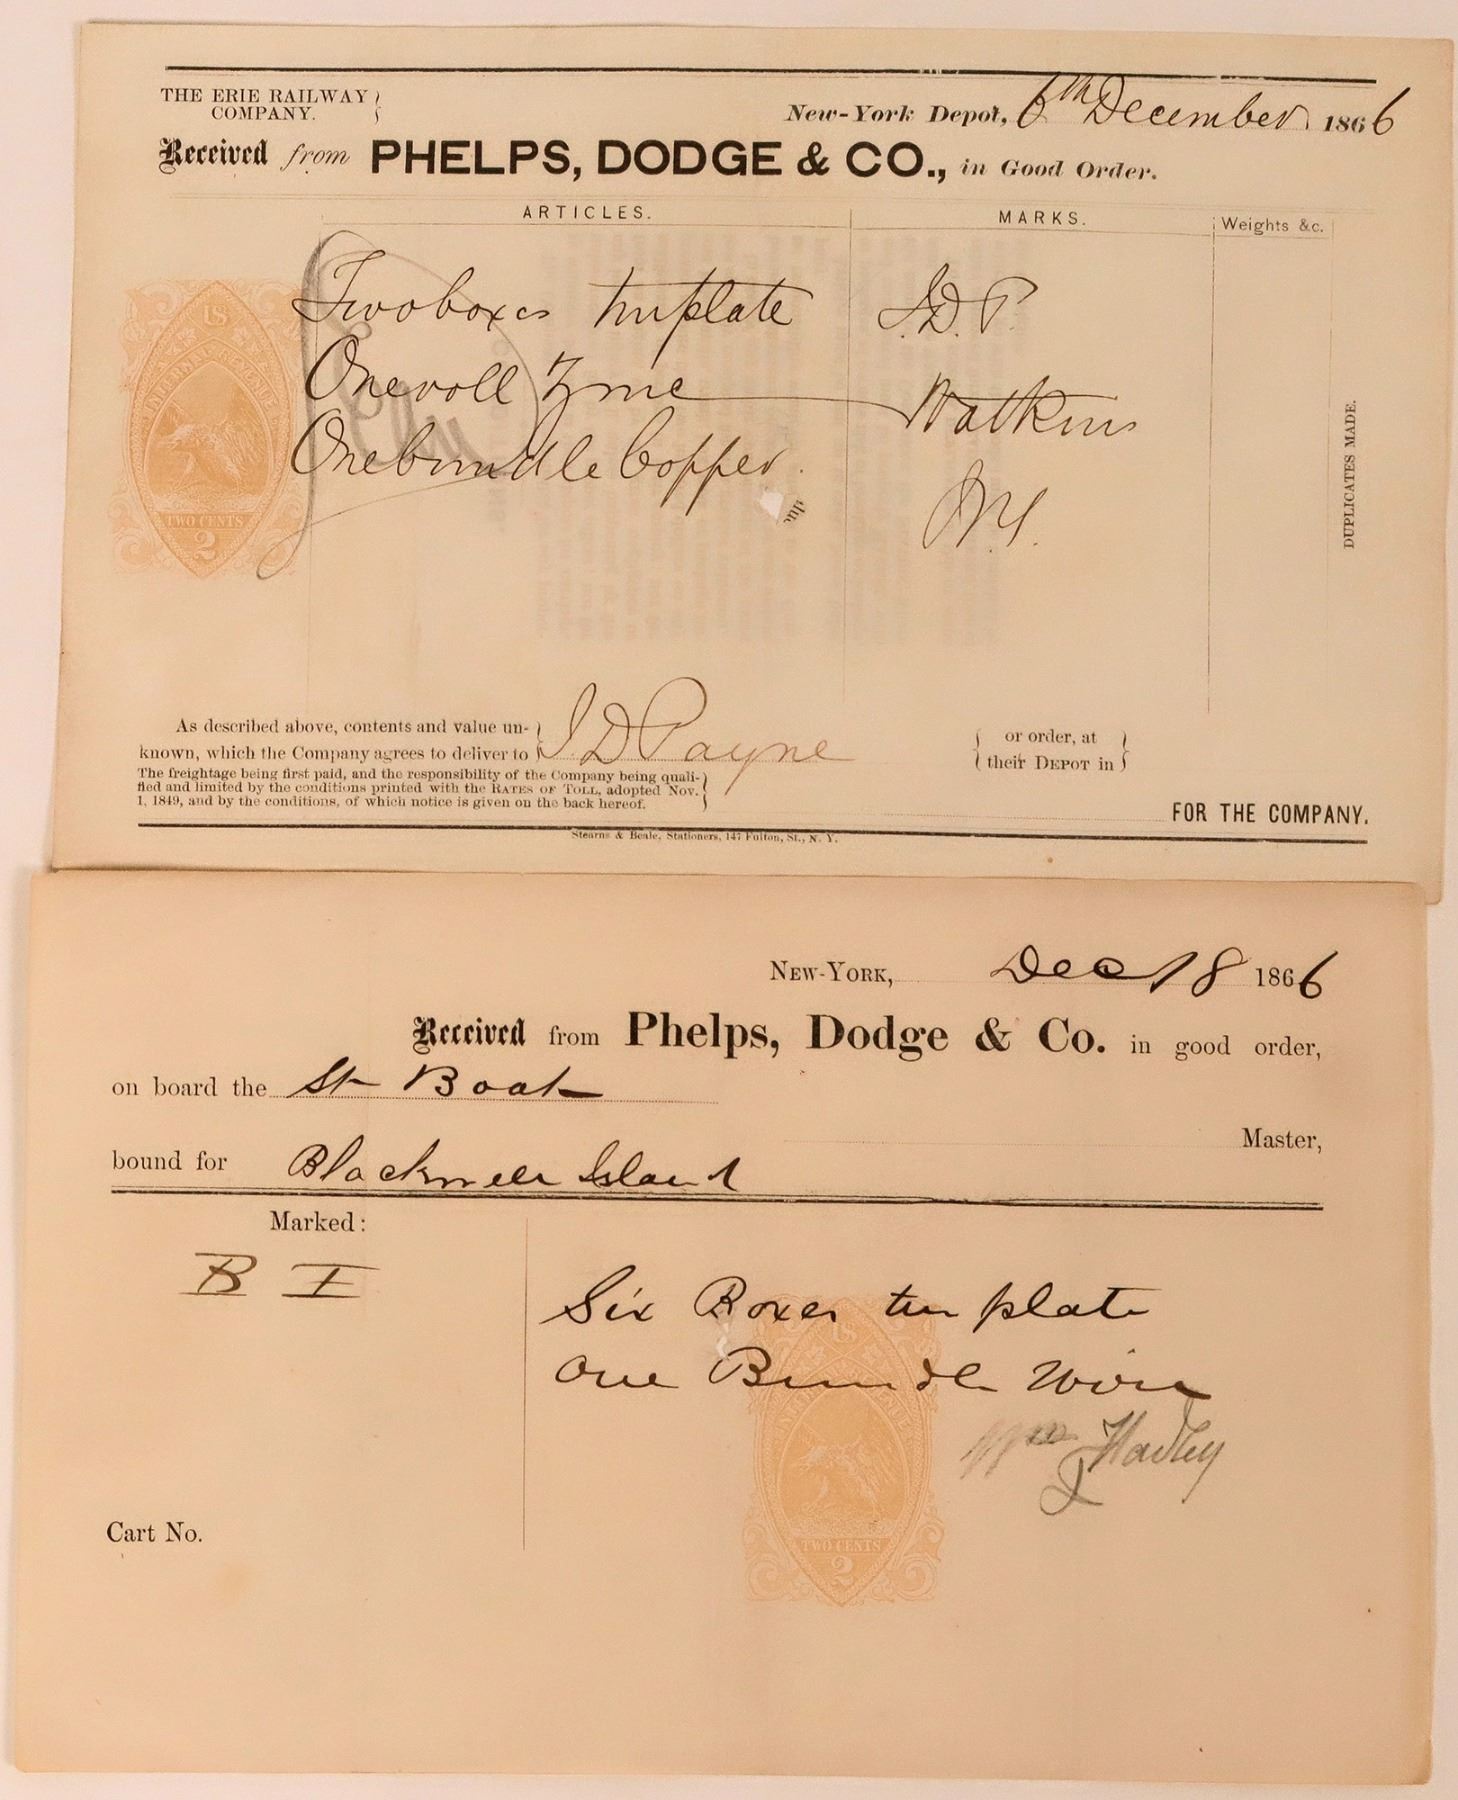 THE ERIE RAILWAY COMPANY.
New-York Depot, 6th December 1866
Received from PHELPS, DODGE & CO., in Good Order.
ARTICLES. MARKS. Weights &c.
US
INTERNAL REVENUE
TWO CENTS
2
Two boxes tin plate J.D.P.
One roll Zinc Watkins
One bundle Copper. N.Y.
DUPLICATES MADE.
As described above, contents and value un-
known, which the Company agrees to deliver to J D Payne
or order, at
their DEPOT in
The freightage being first paid, and the responsibility of the Company being quali-
fied and limited by the conditions printed with the RATES OF TOLL, adopted Nov.
1, 1849, and by the conditions, of which notice is given on the back hereof.
FOR THE COMPANY.
Stearns & Beale, Stationers, 147 Fulton, St., N. Y.
NEW-YORK, Dec 18 1866
Received from Phelps, Dodge & Co. in good order,
on board the St Boat
Master,
bound for Blackwells Island
Marked:
B I
Six Boxes tin plate
One Bundle Wire
US
INTERNAL REVENUE
TWO CENTS
2
Wm Hadley
Cart No.